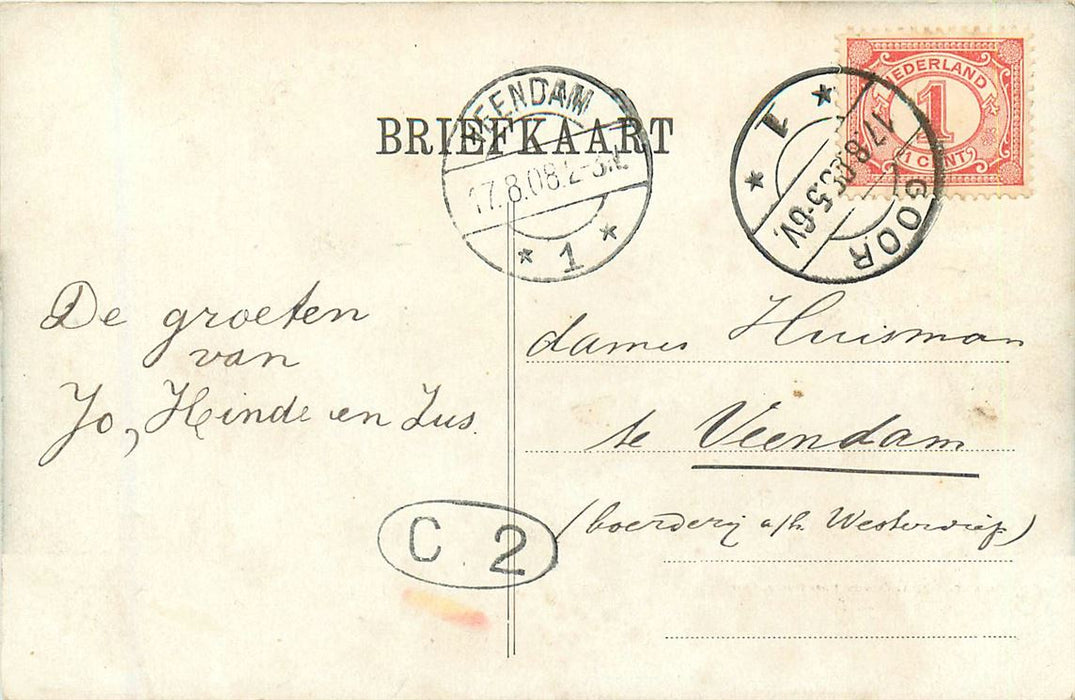 BRIEFKAART
VEENDAM
17.8.08.2-3N.
* 1 *
NEDERLAND
1
1 CENT
GOOR
17.8.08.5-6V.
* 1 *
De groeten
van
Jo, Hinde en Zus.
dames Huisman
te Veendam
(boerderij a/h. Westerdiep)
C 2